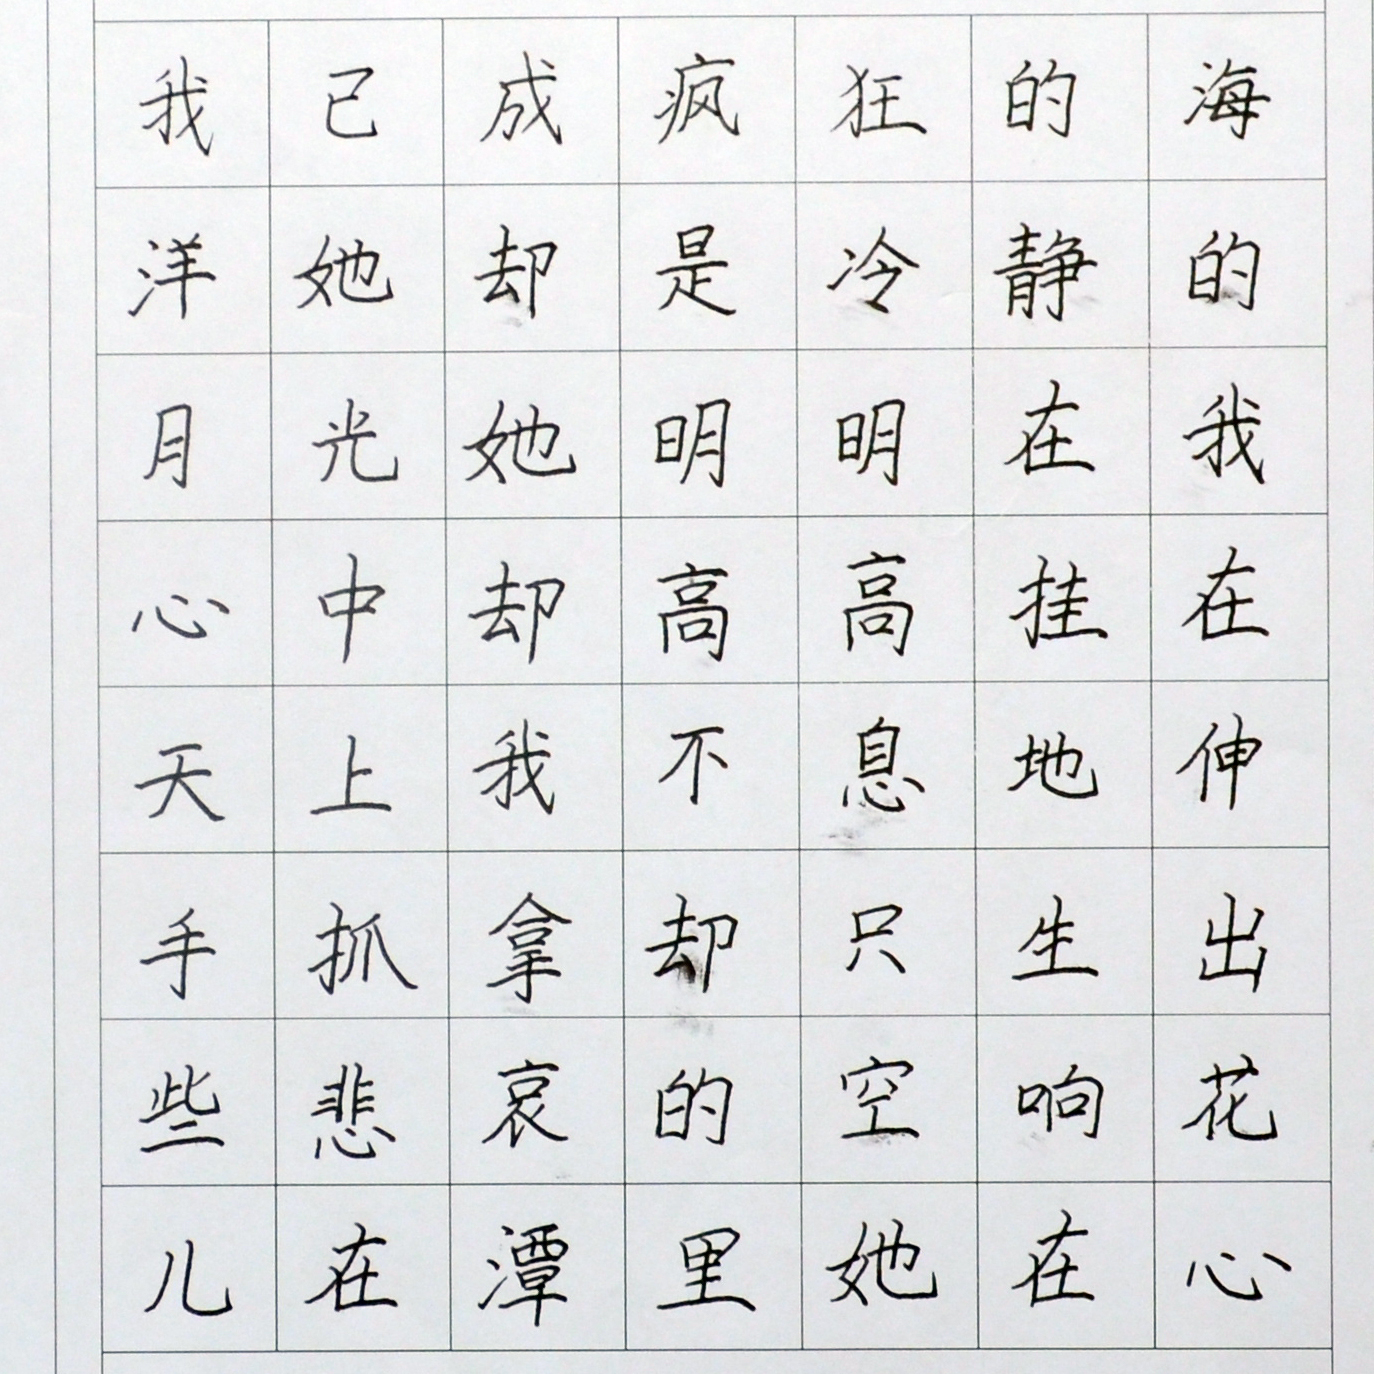 我已成疯狂的海
洋她却是冷静的
月光她明明在我
心中却高高挂在
天上我不息地伸
手抓拿却只生出
些悲哀的空响花
儿在潭里她在心